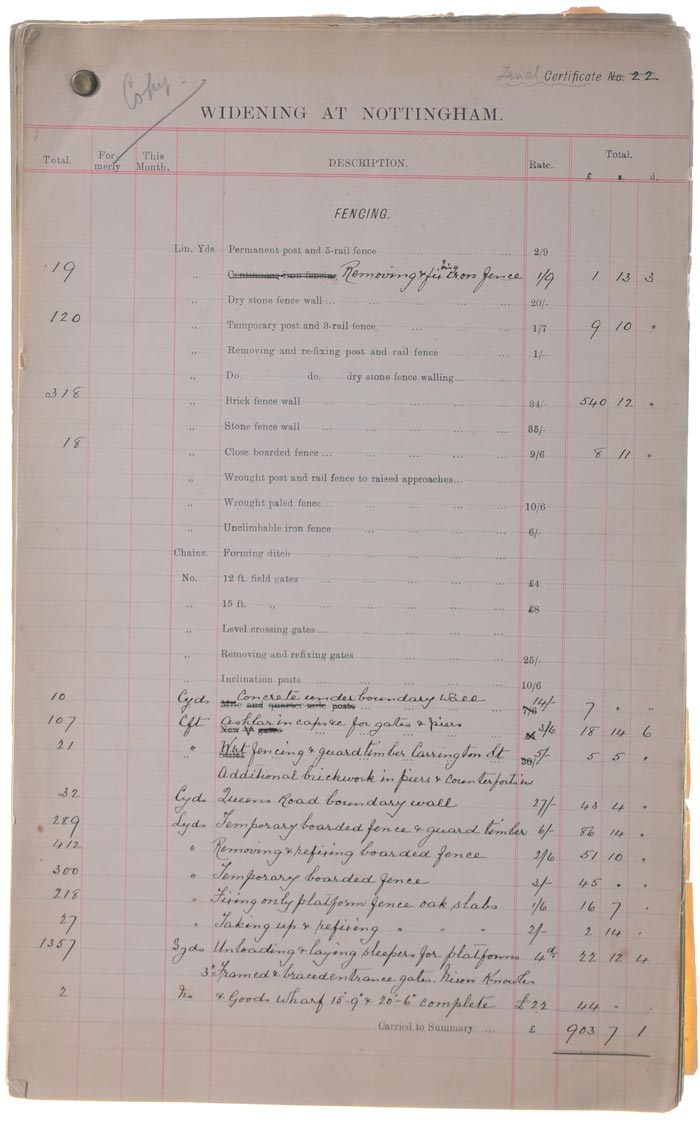 Copy
Final Certificate No. 22
WIDENING AT NOTTINGHAM.
Total. For merly This Month. DESCRIPTION. Rate. Total.
£ s. d.
FENCING.
Lin. Yds. Permanent post and 5-rail fence ... ... ... 2/9
19 „ Continuous iron fencing Removing & fixing iron fence 1/9 1 13 3
„ Dry stone fence wall ... ... ... ... ... 20/-
120 „ Temporary post and 3-rail fence ... ... ... 1/7 9 10 „
„ Removing and re-fixing post and rail fence ... ... 1/-
„ Do. do. dry stone fence walling... ...
318 „ Brick fence wall ... ... ... ... 34/- 540 12 „
„ Stone fence wall ... ... ... ... 35/-
18 „ Close boarded fence ... ... ... ... ... 9/6 8 11 „
„ Wrought post and rail fence to raised approaches... ...
„ Wrought paled fence... ... ... ... ... 10/6
„ Unclimbable iron fence ... ... ... ... 6/-
Chains. Forming ditch ... ... ... ... ...
No. 12 ft. field gates ... ... ... ... £4
„ 15 ft. „ ... ... ... ... £8
„ Level crossing gates ... ... ... ... ...
„ Removing and refixing gates ... ... ... ... 25/-
„ Inclination posts ... ... ... ... 10/6
10 Cyds Mile and quarter mile posts Concrete under boundary wall 7/6 14/- 7 „ „
107 Cft Ashlar in caps &c for gates & piers 3/6 18 14 6
21 „ Wrt fencing & guard timber Carrington St 30/- 5/- 5 5 „
Additional brickwork in piers & counterforts in
32 Cyds Queens Road boundary wall 27/- 43 4 „
289 Lyds Temporary boarded fence & guard timber 6/- 86 14 „
412 „ Removing & refixing boarded fence 2/6 51 10 „
300 „ Temporary boarded fence 3/- 45 „ „
218 „ Fixing only platform fence oak slabs 1/6 16 7 „
27 „ Taking up & refixing „ „ „ 2/- 2 14 „
1357 Syds Unloading & laying sleepers for platforms 4d 22 12 4
3" Framed & braced entrance gates. Nixon Knowles
2 No & Goods Wharf 15'-9" & 20'-6" complete £22 44 „
Carried to Summary ... £ 903 7 1